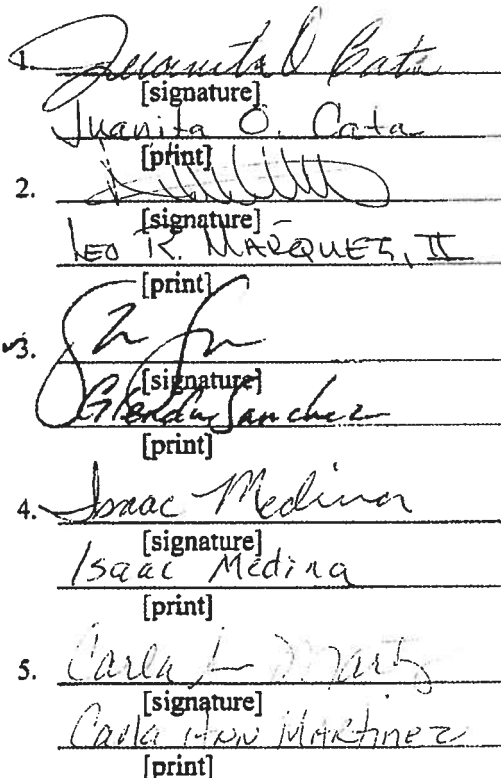 1. Juanita O Cata
[signature]
Juanita O. Cata
[print]
2.
[signature]
LEO R. MARQUEZ, II
[print]
3.
[signature]
Glenda Sanchez
[print]
4. Isaac Medina
[signature]
Isaac Medina
[print]
5. Carla
[signature]
Carla Ann Martinez
[print]